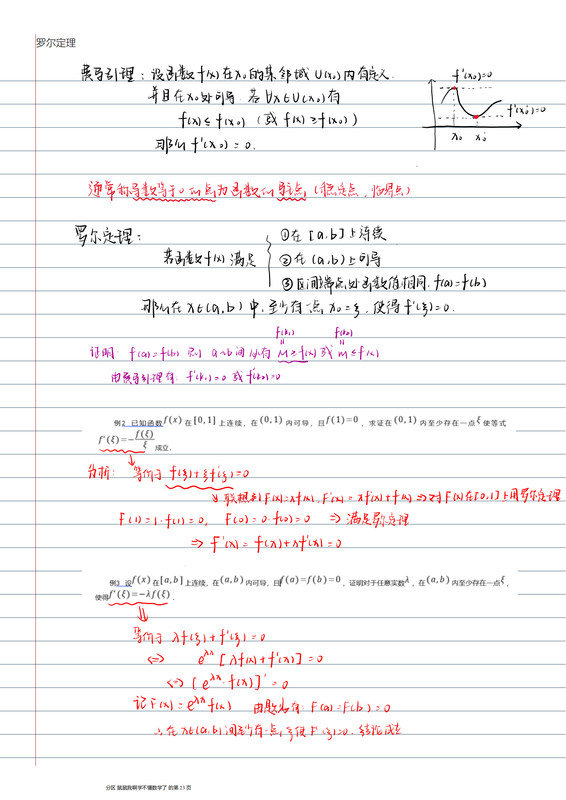 罗尔定理
费马引理：设函数f(x)在x₀的某邻域U(x₀)内有定义.
并且在x₀处可导. 若∀x∈U(x₀)有
f(x)≤f(x₀) (或 f(x)≥f(x₀))
那么f'(x₀)=0.
f'(x₀)=0
f'(x₀)=0
x₀ x₀
通常称导数等于0的点为函数的驻点 (稳定点，临界点)
罗尔定理：
若函数f(x)满足
①在[a,b]上连续
②在(a,b)上可导
③区间端点处函数值相同. f(a)=f(b)
那么在x∈(a,b)中,至少有一点x₀=ξ, 使得f'(ξ)=0.
f(k₁) f(k₂)
证明: f(a)=f(b) 则 a~b间必有 M≥f(x) 或 m≤f(x)
由费马引理有: f'(k₁)=0 或 f'(k₂)=0
例2 已知函数f(x)在[0,1]上连续，在(0,1)内可导，且f(1)=0，求证在(0,1)内至少存在一点ξ使等式
f'(ξ)=-f(ξ)/ξ 成立.
分析: 等价于 f(ξ)+ξf'(ξ)=0
联想到F(x)=xf(x), F'(x)=xf'(x)+f(x) ⇒对F(x)在[0,1]上用罗尔定理
F(1)=1·f(1)=0, F(0)=0·f(0)=0 ⇒ 满足罗尔定理
⇒ F'(x)=f(x)+xf'(x)=0
例3 设f(x)在[a,b]上连续，在(a,b)内可导，且f(a)=f(b)=0，证明对于任意实数λ，在(a,b)内至少存在一点ξ，
使得f'(ξ)=-λf(ξ).
等价于 λf(ξ)+f'(ξ)=0
⇔ e^{λx}[λf(x)+f'(x)]=0
⇔ [e^{λx}·f(x)]'=0
记F(x)=e^{λx}f(x) 由题知有: F(a)=F(b)=0
∴在x∈(a,b)间至少有一点ξ使F'(ξ)=0. 结论成立
分区 鼠鼠我啊学不懂数学了 的第 23 页